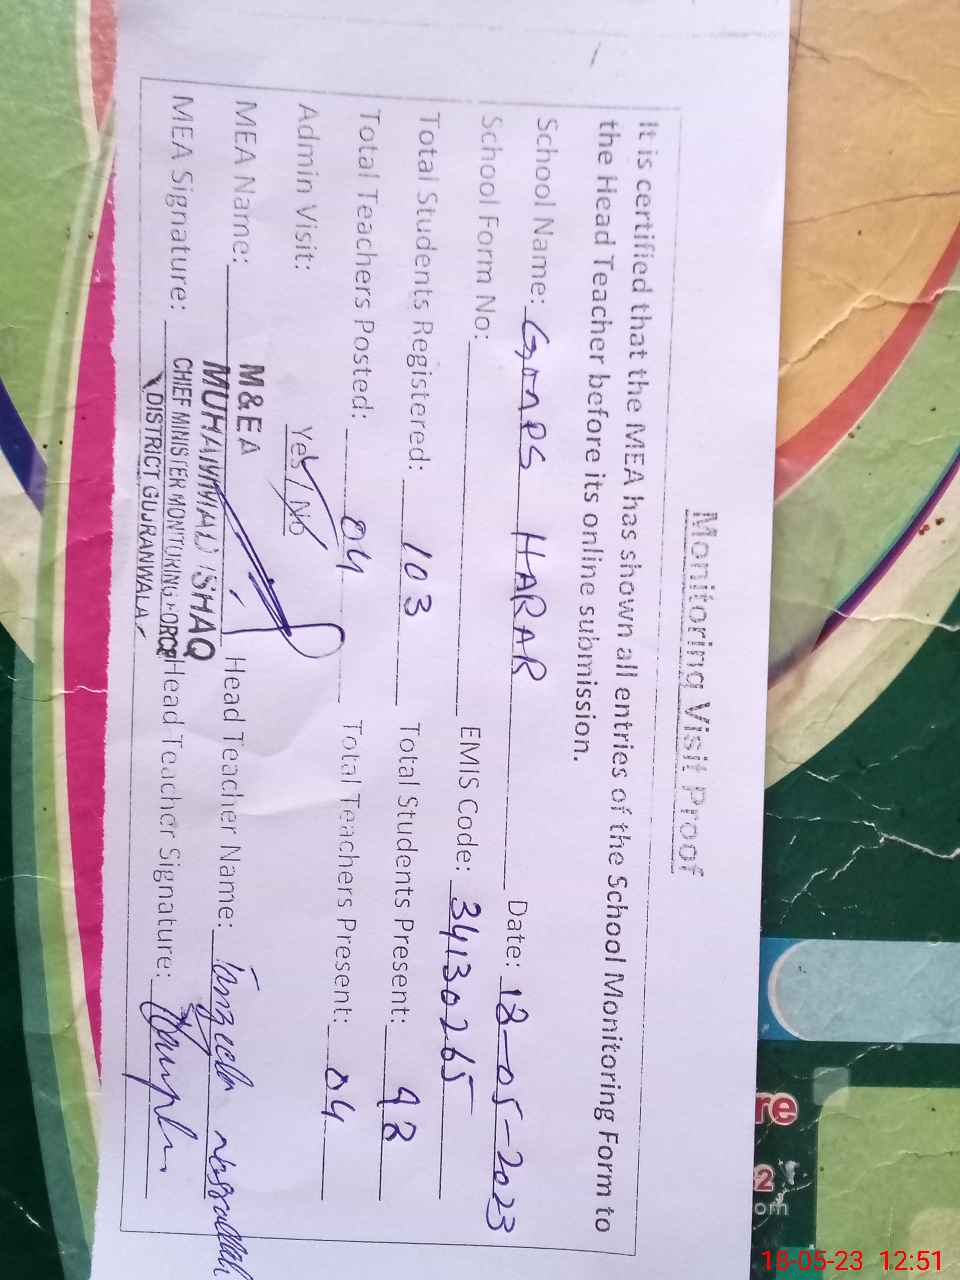 Monitoring Visit Proof
It is certified that the MEA has shown all entries of the School Monitoring Form to
the Head Teacher before its online submission.
School Name: GMPS HARAR Date: 18-05-2023
School Form No: EMIS Code: 34130265
Total Students Registered: 103 Total Students Present: 98
Total Teachers Posted: 04 Total Teachers Present: 04
Admin Visit: Yes / No
M&EA
MEA Name: MUHAMMAD ISHAQ Head Teacher Name: Tanzeela
MEA Signature: CHIEF MINISTER MONITORING FORCE Head Teacher Signature:
DISTRICT GUJRANWALA
re
2
om
18-05-23 12:51